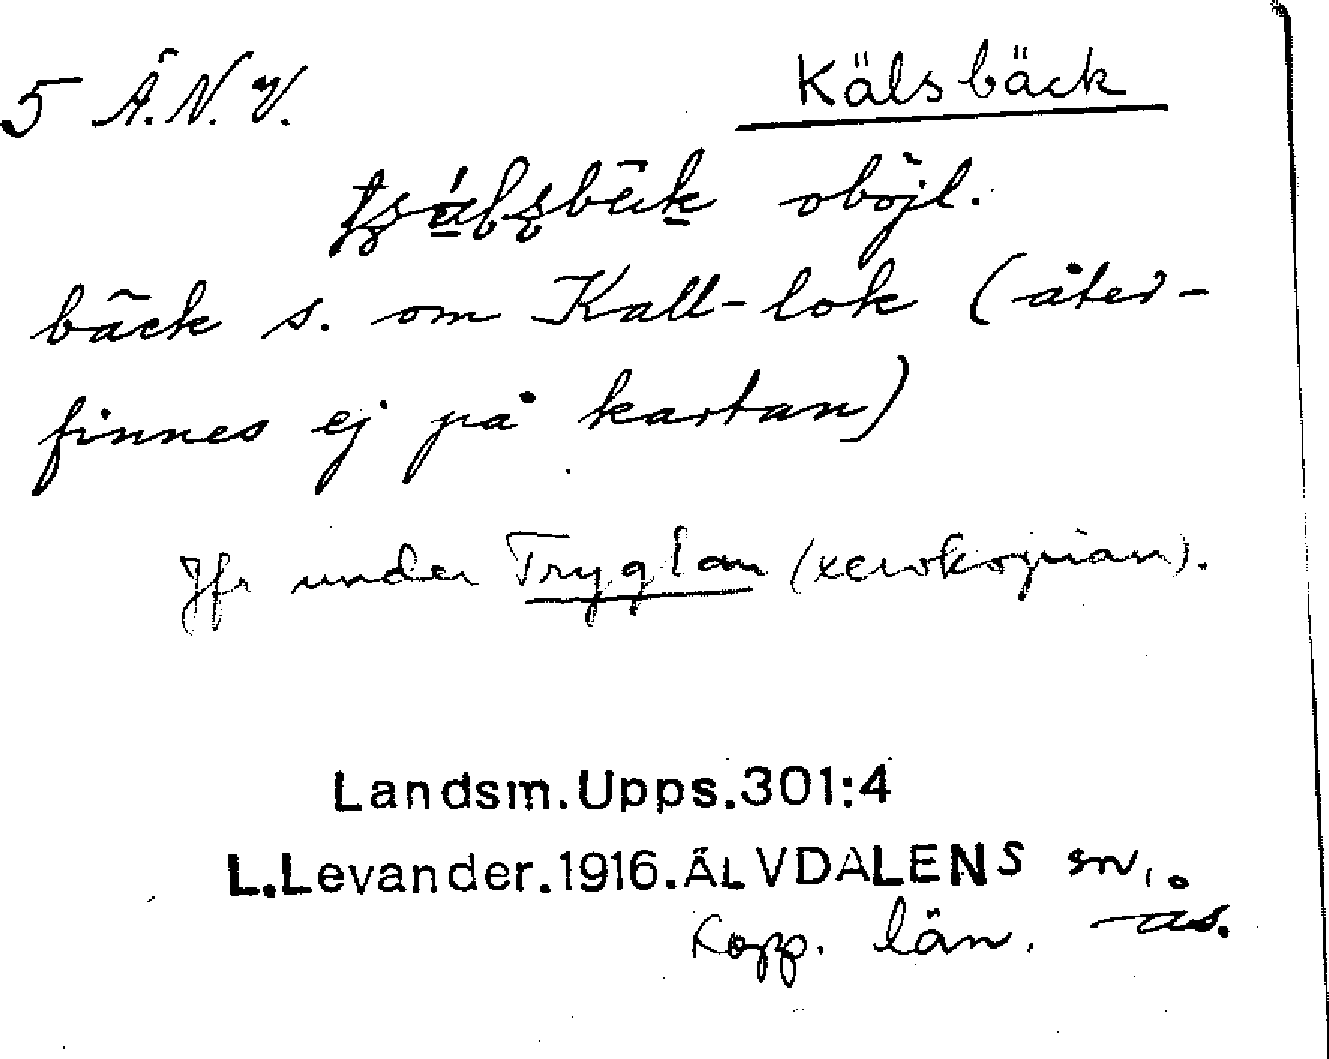 5 Ä.N.V. Kälsbäck
oböjl.
bäck s. om Kall-lok (åter-
finnes ej på kartan)
Jfr under Tryglan (xerokopian).
Landsm.Upps.301:4
L.Levander.1916.ÄLVDALENS sn,
Kopp. län. ås.